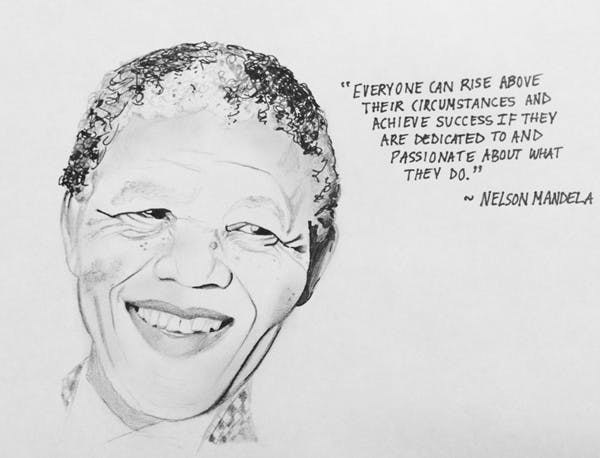 "EVERYONE CAN RISE ABOVE
THEIR CIRCUMSTANCES AND
ACHIEVE SUCCESS IF THEY
ARE DEDICATED TO AND
PASSIONATE ABOUT WHAT
THEY DO."
~ NELSON MANDELA